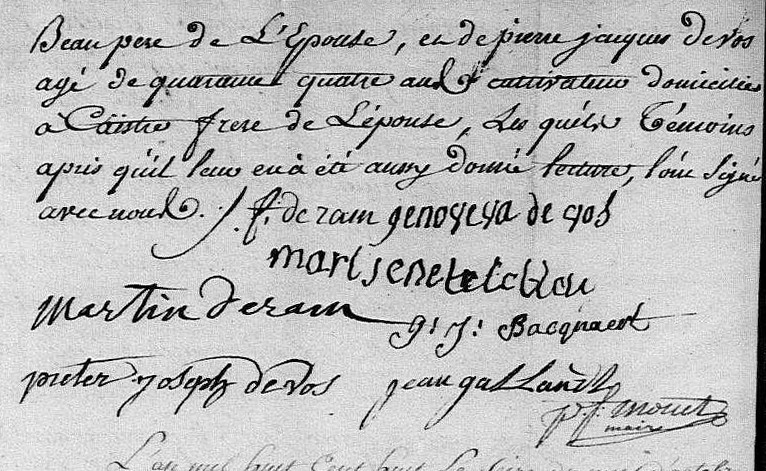 Beau pere de L'Epouse, en de pierre jacques de vos
agé de quarante quatre ans cultivateur domicilié
à Caëstre frere de L'épouse, Les quéls Témoins
aprés qu'il leur en à été aussy donné lecture, l'ont Signé
avec nous. /. f: de ram genoveva de vos
martin deram g: J: Bacquaert
pieter joseph de vos jean gallandt
p. f. mouet
maire
L'an mil huit Cent huit Le